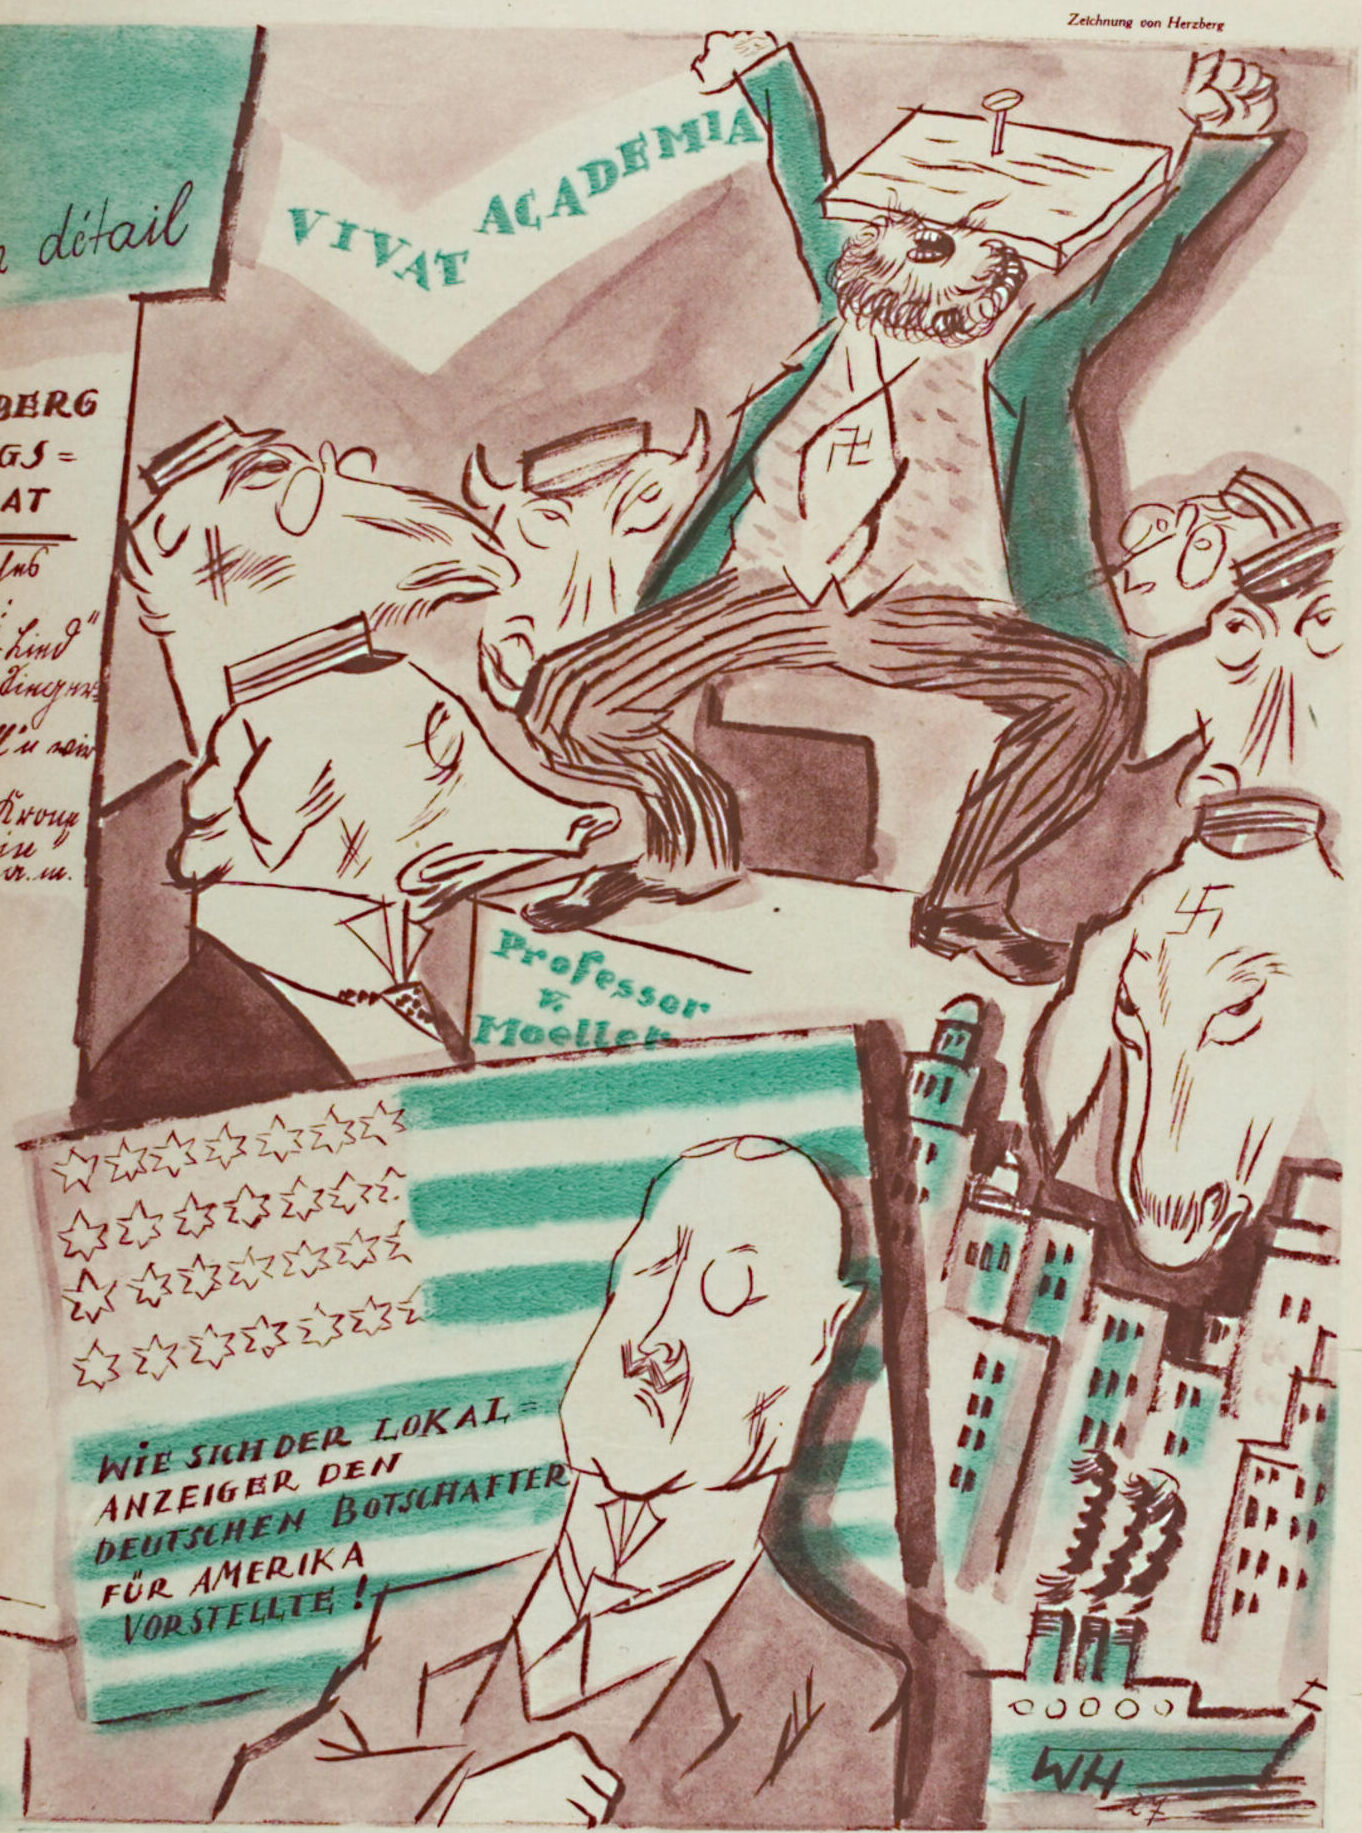 Zeichnung von Herzberg
détail
VIVAT ACADEMIA
BERG
GS=
AT
Lind"
wir
Professor
v.
Moeller
WIE SICH DER LOKAL=
ANZEIGER DEN
DEUTSCHEN BOTSCHAFTER
FÜR AMERIKA
VORSTELLTE!
WH
27